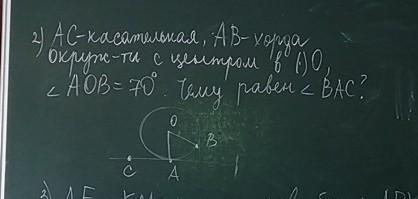 2) AC-касательная, AB-хорда
окруж-ти с центром в () O,
∠ AOB = 70°. Чему равен ∠ BAC?
O
B
C
A